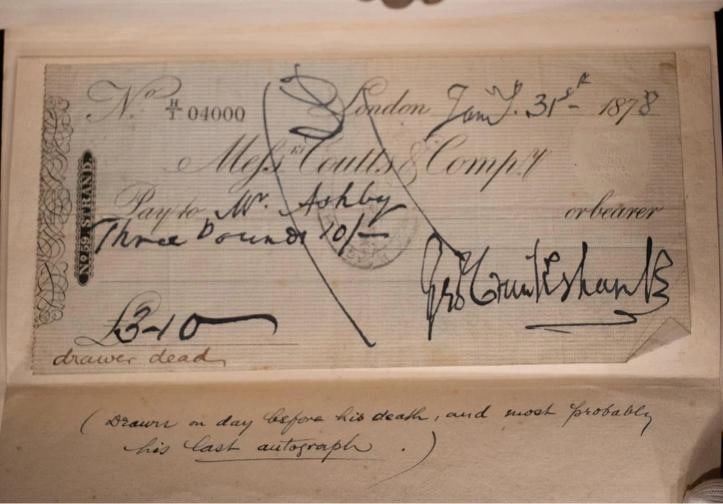 No. H/1 04000 London Jany. 31st- 1878
Messrs Coutts & Compy
Pay to Mr. Ashby or bearer
Three Pounds 10/-
Geo Cruikshank
£3-10
No 59, STRAND.
drawer dead
(Drawn on day before his death, and most probably
his last autograph.)